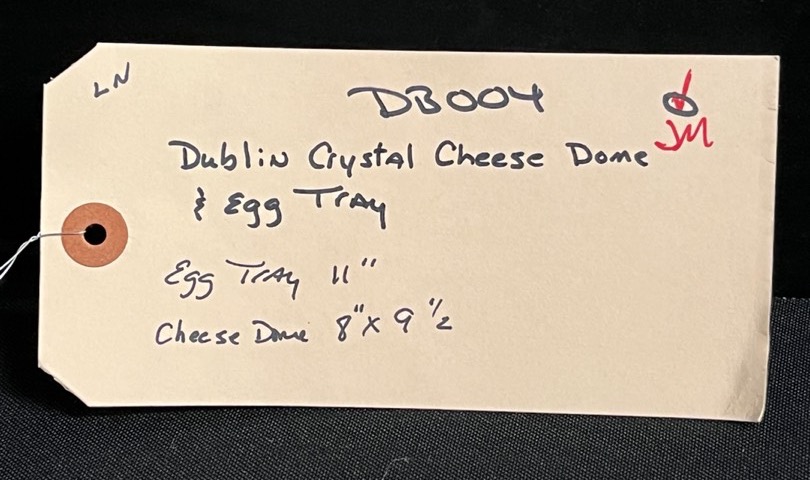 LN
DB004
JM
Dublin Crystal Cheese Dome
& Egg Tray
Egg Tray 11"
Cheese Dome 8" x 9 1/2